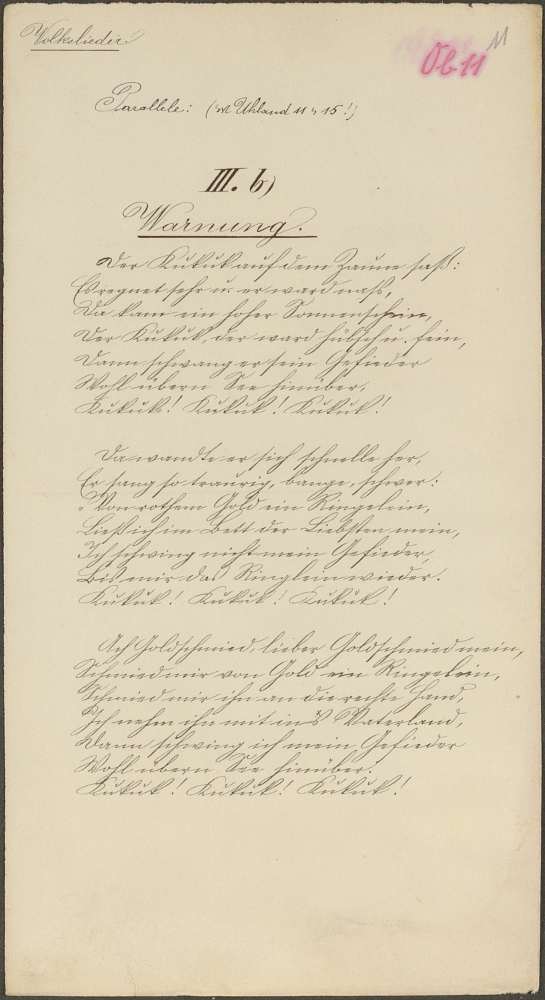 Volkslieder
Ob 11
11
Parallele: (Uhland 11 u 15!)
III. b)
Warnung.
Der Kukuk auf dem Zaune saß:
Es regnet sehr u. er ward naß,
Da kam ein hoher Sonnenschein,
Der Kukuk, der ward hübsch u. fein,
Dann schwang er sein Gefieder
Wohl übern See hinüber.
Kukuk! Kukuk! Kukuk!
Da wandte er sich schnelle her,
Er sang so traurig, bange, schwer:
„Von rothem Gold ein Ringelein,
Ließ ich im Bett der Liebsten mein,
Ich schwing nicht mein Gefieder,
Bis mir das Ringlein wieder.
Kukuk! Kukuk! Kukuk!
Ach Goldschmied, lieber Goldschmied mein,
Schmied mir von Gold ein Ringelein,
Schmied mir ihn an die rechte Hand,
Ich nehm ihn mit in's Vaterland,
Dann schwing ich mein Gefieder
Wohl übern See hinüber.
Kukuk! Kukuk! Kukuk!